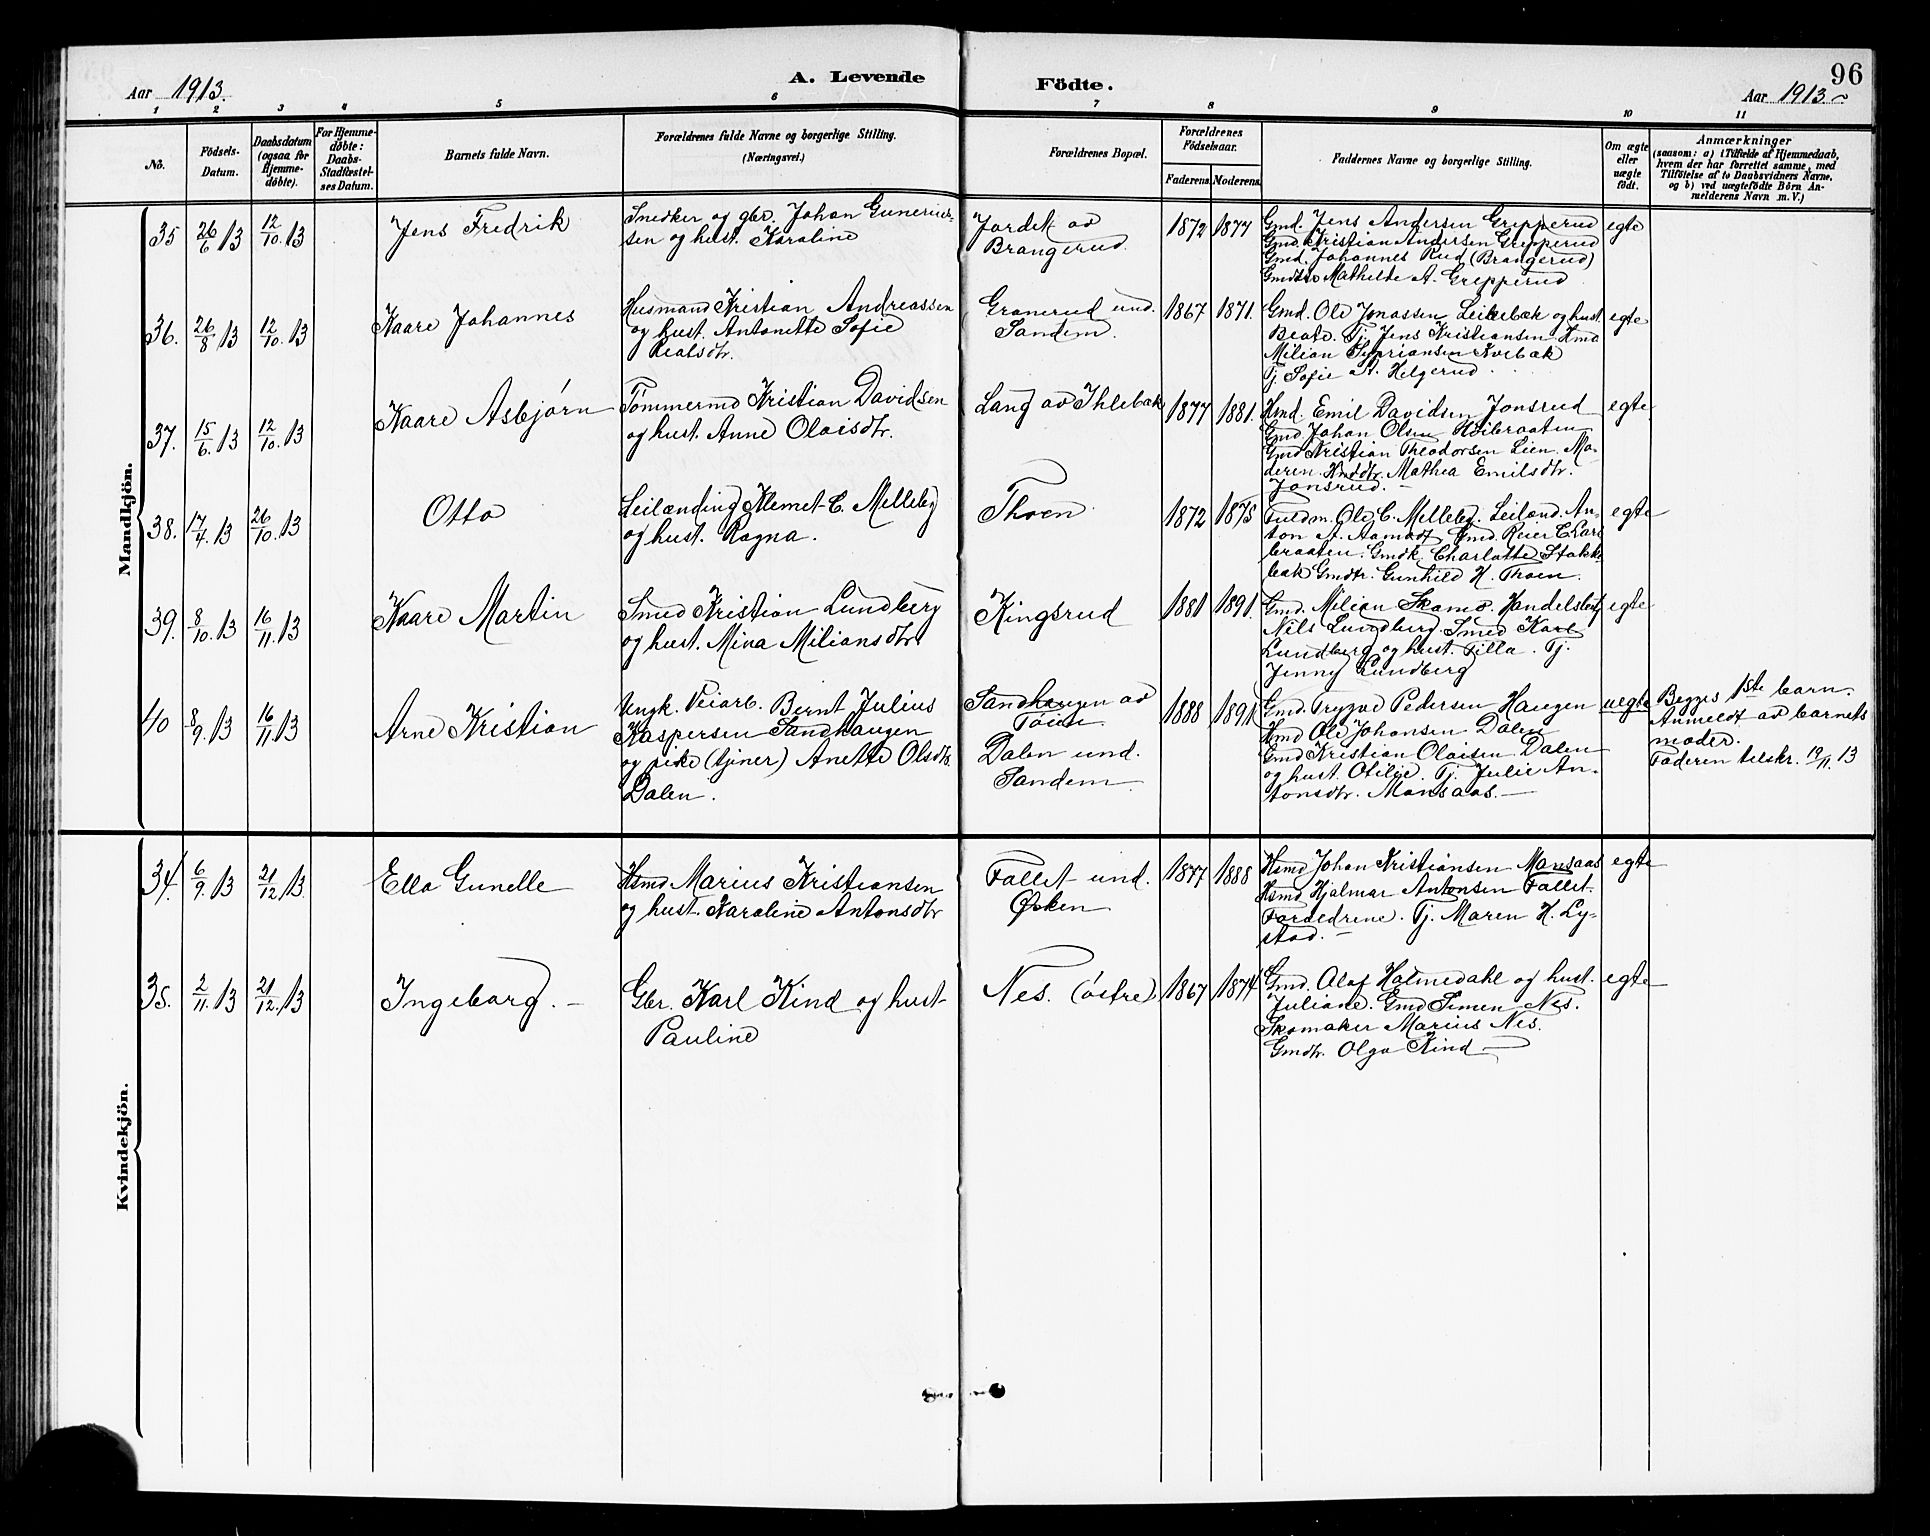 96
Aar 1913.
A. Levende
Födte.
Aar 1913
1 2 3 4 5 6 7 8 9 10 11
No.
Födsels-Datum.
Daabsdatum (ogsaa for Hjemme-döbte).
For Hjemme-döbte: Daabs-Stadfæstel-ses Datum.
Barnets fulde Navn.
Forældrenes fulde Navne og borgerlige Stilling.
(Næringsvei.)
Forældrenes Bopæl.
Forældrenes Födselsaar.
Faderens. Moderens.
Faddernes Navne og borgerlige Stilling.
Om ægte eller uægte födt.
Anmærkninger
(saasom: a) i Tilfælde af Hjemmedaab,
hvem der har forrettet samme, med
Tilföielse af to Daabsvidners Navne,
og b) ved uægtefödte Börn An-
melderens Navn m. V.)
Mandkjön.
35 26/6 13 12/10 13 Jens Fredrik
Snedker og gbr. Johan Gunerius-
sen og hust. Karoline
Jordet av
Brangerud.
1872 1877
Gmd. Jens Andersen Grepperud
Gmd. Kristian Andersen Grepperud
Gmd. Johannes Rud (Brangerud)
Gmdtr. Mathilde A. Grepperud
egte
36. 26/8 13 12/10 13 Kaare Johannes
Husmand Kristian Andreassen
og hust. Antonette Sofie
Realsdtr.
Granerud und.
Sandem.
1867 1871.
Gmd. Ole Jonassen Leikebæk og hust.
Beate. Tj. Jens Kristiansen
Milian Sypriansen
Tj. Sofie A. Helgerud.
egte
37. 15/6 13 12/10 13 Kaare Asbjørn
Tømmermd Kristian Davidsen
og hust. Anne Olaisdtr.
Lang av Ihlebæk
1877 1881.
Hmd. Emil Davidsen Jonsrud
Gmd Johan Olsen Høibraaten
Gmd Kristian Theodorsen Lien. Mo-
deren. Hmddtr. Mathea Emilsdtr.
Jonsrud. —
egte
38. 17/4 13 26/10 13 Otto
Leilænding Klemet C. Melleby
og hust. Ragna.
Thoen
1872 1875
Fuldm. Ole C. Melleby. Leilænd. An-
ton A. Aamodt Gmd. Reier E
braaten. Gmdk. Charlotte
bæk Gmdtr. Gunhild H. Thoen.
egte
39. 8/10 13 16/11 13 Kaare Martin
Smed Kristian Lundberg
og hust. Mina Miliansdtr.
Kingsrud
1881 1891.
Gmd. Milian Skamo. Handelsbetj.
Nils Lundberg. Smed Karl
Lundberg og hust. Tilla. Tj.
Jenny Lundberg
egte
40 8/9 13 16/11 13 Arne Kristian
Ungk. Veiarb. Bernt Julius
Kaspersen Sandhaugen
og pike (tjener) Anette Olsdtr.
Dalen.
Sandhaugen av
Tøien
Dalen und.
Sandem.
1888 1891
Gmd. Trygve Pedersen Haugen
Hmd Ole Johansen Dalen
Gmd Kristian Olaisen Dalen
og hust. Otilie. Tj. Julie An-
tonsdtr. Mansaas. —
uegte
Begges 1ste barn.
Anmeldt av barnets
moder.
Faderen tilskr. 19/11 13
Kvindekjön.
34. 6/9 13 21/12 13 Ella Gunelle
Hsmd Marius Kristiansen
og hust. Karoline Antonsdtr
Fallet und.
 Øsken
1877 1888
Hsmd Johan Kristiansen Mansaas
Hsmd Hjalmar Antonsen Fallet.
Forældrene. Tj. Maren H. Ly-
stad. —
egte
35. 2/11 13 21/12 13 Ingeborg. —
Gbr. Karl Kind og hust.
Pauline
Nes. (østre)
1867 1874
Gmd. Olaf Holmedahl og hust.
Juliane. Gmd Simen Nes.
Skomaker Marius Nes.
Gmdtr. Olga Kind —
egte